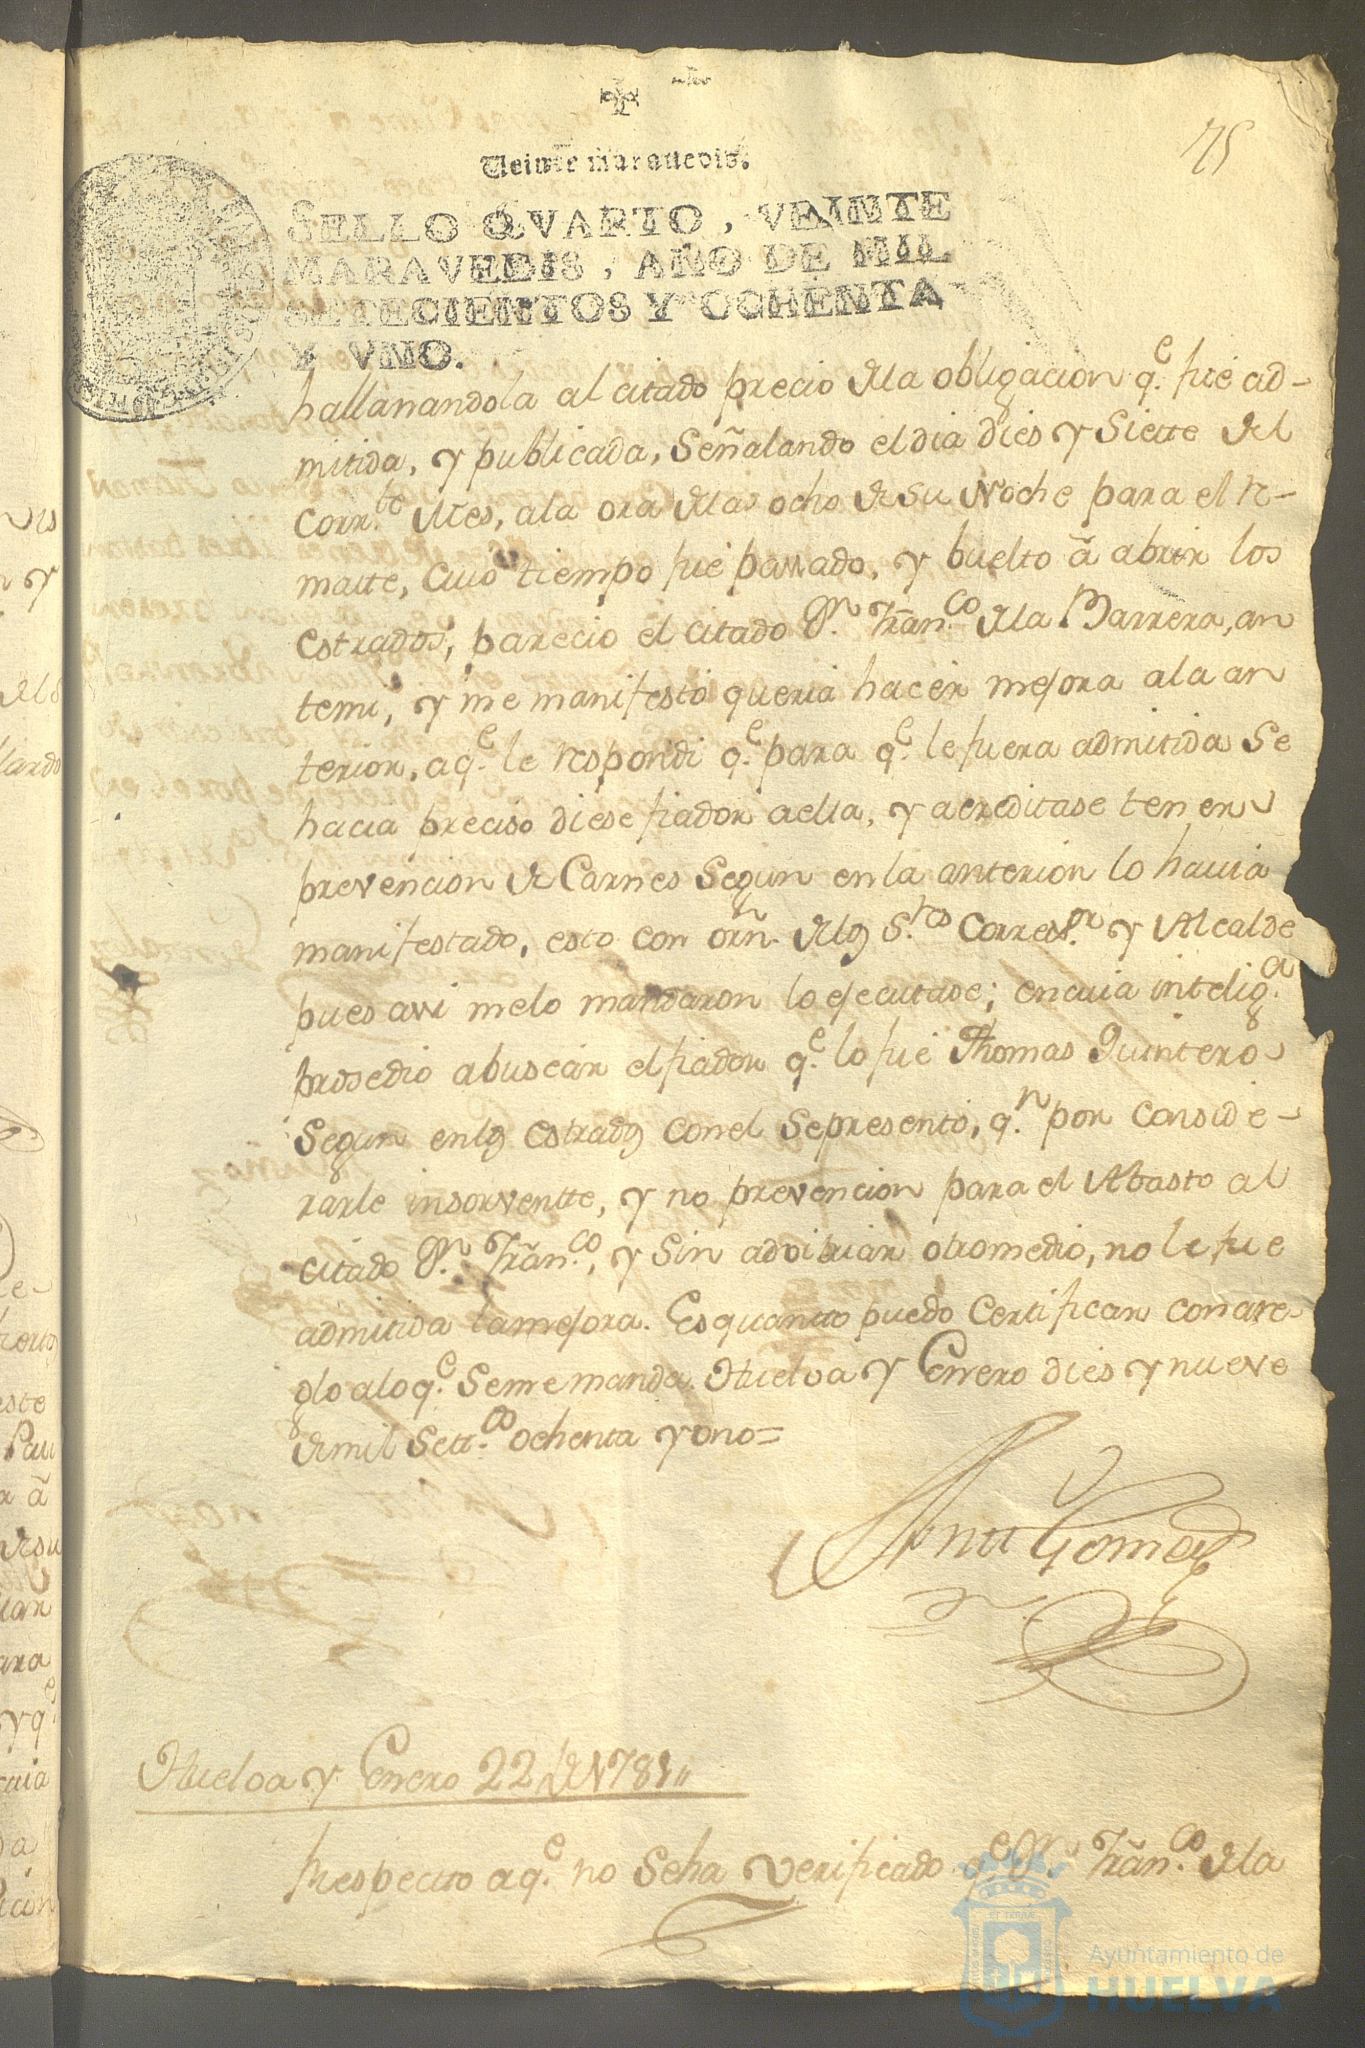 75
Veinte marauedis.
SELLO QVARTO, VEINTE
MARAVEDIS, AÑO DE MIL
SETECIENTOS Y OCHENTA
Y VNO.
hallanandola al citado precio dela obligacion q.e fué ad-
mitida, y publicada, Señalando el dia dies y Siette del
Corr.te Mes, ala ora delas ocho de Su Noche para el re-
matte, cuio tiempo fué passado, y buelto â abrir los
estrados, parecio el citado Dn. Fran.co dela Barrera, an
temi, y me manifestó queria hacer mejora ala an
terior, aq.e le respondi q.e para q.e le fuera admitida Se
hacia preciso diese fiador aella, y acreditase tener
prevencion de Carnes Segun enla anterior lo havia
manifestado, esto con orñ. delos S.res Corres.or y Alcalde
pues assi melo mandaron lo ejecutase; encuia intelig.a
prosedio abuscar elfiador q.e lo fué Thomas Quintero
Segun enlos estrados conel Sepresentó, q.n por conside-
rarle insorventte, y no prevencion para el Abasto al
citado Dn. Fran.co, y Sin advitriar otromedio, no le fue
admitida lamejora. Es quantto puedo Certificar conarre-
glo aloq.e Seme manda. Huelva y Enero dies y nueve
demil Sett.os ochenta yono=
Gomez
Huelva y Enero 22 de 1781,,
Respectto aq.e no Seha verificado q.e Dn. Fran.co dela
Ayuntamiento de
HUELVA